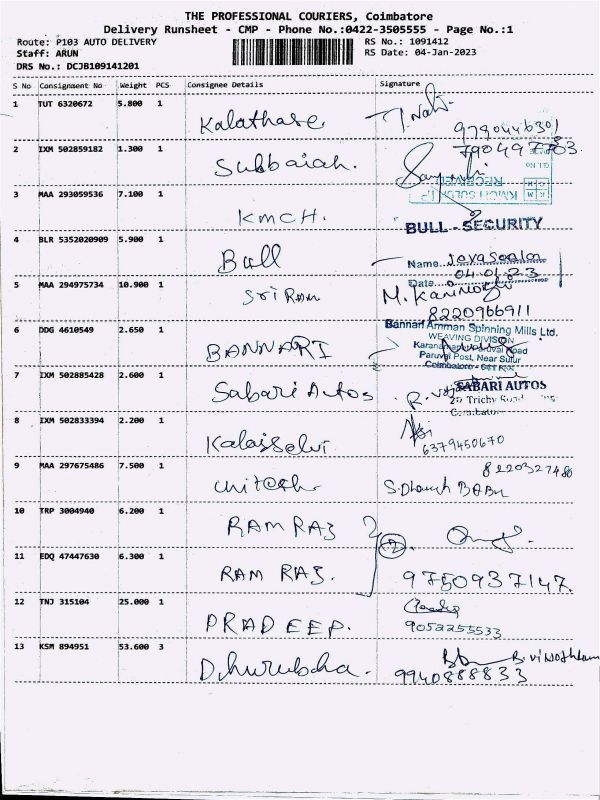 THE PROFESSIONAL COURIERS, Coimbatore
Delivery Runsheet - CMP - Phone No.:0422-3505555 - Page No.:1
Route: P103 AUTO DELIVERY RS No.: 1091412
Staff: ARUN RS Date: 04-Jan-2023
DRS No.: DCJB109141201
S No Consignment No Weight PCS Consignee Details Signature
1 TUT 6320672 5.800 1 Kalathase
2 IXM 502859182 1.300 1 Subbaiah.
RECEIVED
3 MAA 293059536 7.100 1 KMCH.
BULL - SECURITY
4 BLR 5352020909 5.900 1 Bull
Name
Date 04.01.23
5 MAA 294975734 10.900 1 Sri Ram M.
8220966911
Bannari Amman Spinning Mills Ltd.
WEAVING DIVISION
6 DDG 4610549 2.650 1 BANNARI
Paruvai Post, Near Sulur
7 IXM 502885428 2.600 1 Sabari Autos
SABARI AUTOS
8 IXM 502833394 2.200 1 Kalaiselvi
6379450670
9 MAA 297675486 7.500 1 Unitesh S.Dhanush BABU
10 TRP 3004940 6.200 1 RAM RAJ
11 EDQ 47447630 6.300 1 RAM RAJ. 9750937147.
12 TNJ 315104 25.000 1 PRADEEP.
9052255533
13 KSM 894951 53.600 3 Dhurubcha.
9940888833